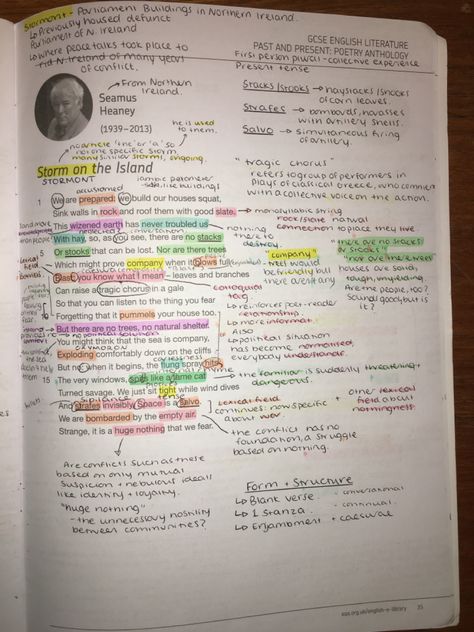 Stormont - Parliament Buildings in Northern Ireland.
↳ Previously housed defunct
Parliament of N. Ireland
↳ where peace talks took place to
rid N. Ireland of many years
of conflict.
GCSE ENGLISH LITERATURE
PAST AND PRESENT: POETRY ANTHOLOGY
First person plural - collective experience
Present tense
→ From Northern
Ireland.
Seamus
Heaney
(1939–2013)
he is used
to them.
Stacks/Stooks → haystacks/shocks
of corn leaves.
Strafes → bombards, harasses
with artillery shells.
Salvo → simultaneous firing
of artillery.
no article 'the' or 'a' so
not one specific storm
many similar storms, ongoing.
Storm on the Island
STORMONT
iambic pentameter
safe, like buildings
"tragic chorus"
refers to group of performers in
plays of classical Greece, who comment
with a collective voice on the action.
accustomed
1 We are prepared: we build our houses squat,
Sink walls in rock and roof them with good slate.
This wizened earth has never troubled us
With hay, so, as you see, there are no stacks
5 Or stooks that can be lost. Nor are there trees
Which might prove company when it blows full
Blast: you know what I mean — leaves and branches
Can raise a tragic chorus in a gale
So that you can listen to the thing you fear
10 Forgetting that it pummels your house too.
But there are no trees, no natural shelter.
You might think that the sea is company,
Exploding comfortably down on the cliffs
But no: when it begins, the flung spray hits
15 The very windows, spits like a tame cat
Turned savage. We just sit tight while wind dives
And strafes invisibly. Space is a salvo.
We are bombarded by the empty air.
Strange, it is a huge nothing that we fear.
→ monosyllabic strong
rock/slate natural
connection to place they live
nothing
there to
destroy.
"there are no stacks
or stooks"
"nor are there trees"
houses are squat,
Are the people, too?
company
trees would
be friendly but
there aren't any
colloquial
tag
↳ reinforces poet-reader
relationship.
↳ more informal
Also
↳ political situation
has become normalised,
everybody understands.
OXYMORON
the familiar is suddenly threatening +
dangerous.
sibilance
Lexical field
continues: now specific
about war.
+ other lexical
field about
nothingness.
the conflict has no
foundation, a struggle
based on nothing.
Are conflicts such as these
based on only mutual
suspicion + nebulous ideals
like identity + loyalty.
"huge nothing"
- the unnecessary hostility
between communities?
Form + Structure
↳ Blank verse - conversational
↳ 1 Stanza - continual
↳ Enjambment + caesurae
aqa.org.uk/english-e-library 35